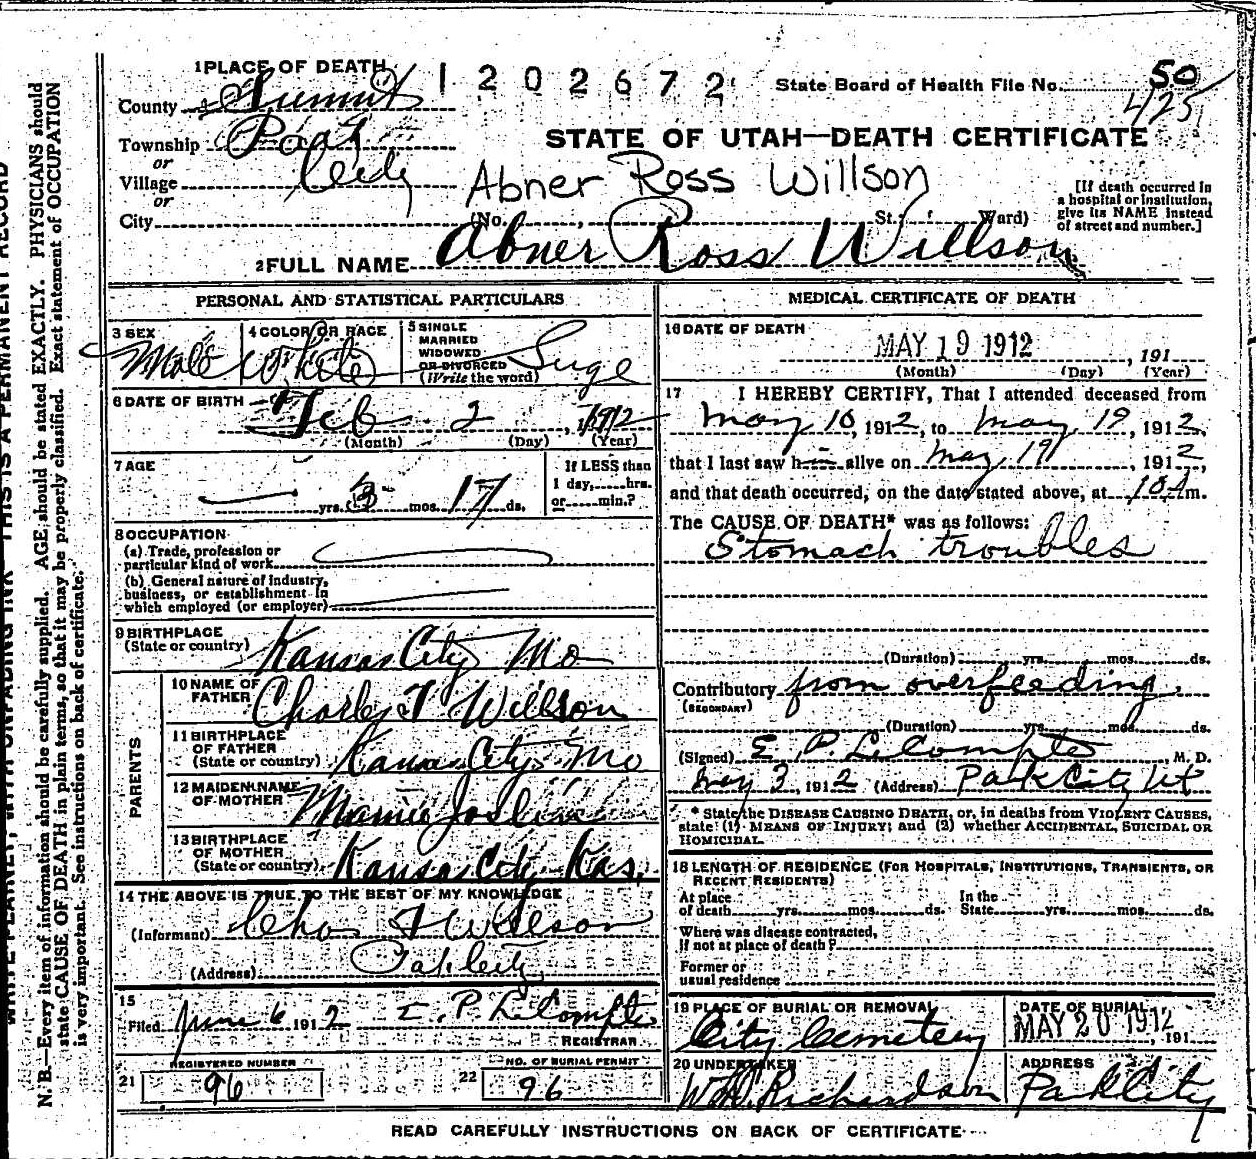 1 PLACE OF DEATH
1202672
State Board of Health File No. 50
4/25
County Summit
Township Park
or
Village City
or
City
STATE OF UTAH—DEATH CERTIFICATE
Abner Ross Willson
(No. , St.; Ward)
[If death occurred in
a hospital or institution,
give its NAME instead
of street and number.]
2 FULL NAME Abner Ross Willson
PERSONAL AND STATISTICAL PARTICULARS
3 SEX
Male
4 COLOR OR RACE
White
5 SINGLE
MARRIED
WIDOWED
OR DIVORCED
(Write the word)
6 DATE OF BIRTH
Feb 2, 1912
(Month) (Day) (Year)
7 AGE
yrs. 3 mos. 17 ds.
If LESS than
1 day, hrs.
or min.?
8 OCCUPATION
(a) Trade, profession or
particular kind of work
(b) General nature of industry,
business, or establishment in
which employed (or employer)
9 BIRTHPLACE
(State or country)
Kansas City Mo
PARENTS
10 NAME OF
FATHER
Charles T Willson
11 BIRTHPLACE
OF FATHER
(State or country)
Kansas City Mo
12 MAIDEN NAME
OF MOTHER
Mamie
13 BIRTHPLACE
OF MOTHER
(State or country)
Kansas City Kas.
14 THE ABOVE IS TRUE TO THE BEST OF MY KNOWLEDGE
(Informant) Chas Willson
(Address) Park City
15
Filed June 6 1912 E. P. LeCompte
REGISTRAR
REGISTERED NUMBER
21 96
NO. OF BURIAL PERMIT
22 96
MEDICAL CERTIFICATE OF DEATH
16 DATE OF DEATH
MAY 19 1912, 191
(Month) (Day) (Year)
17 I HEREBY CERTIFY, That I attended deceased from
May 10, 1912, to May 19, 1912,
that I last saw h alive on May 19, 1912,
and that death occurred, on the date stated above, at m.
The CAUSE OF DEATH* was as follows:
Stomach troubles
(Duration) yrs. mos. ds.
Contributory from overfeeding.
(SECONDARY)
(Duration) yrs. mos. ds.
(Signed) E. P. LeCompte, M. D.
May 3, 1912 (Address) Park City Ut
* State the DISEASE CAUSING DEATH, or, in deaths from VIOLENT CAUSES,
state (1) MEANS OF INJURY; and (2) whether ACCIDENTAL, SUICIDAL OR
HOMICIDAL.
18 LENGTH OF RESIDENCE (FOR HOSPITALS, INSTITUTIONS, TRANSIENTS, OR
RECENT RESIDENTS)
At place
of death yrs. mos. ds.
In the
State yrs. mos. ds.
Where was disease contracted,
if not at place of death?
Former or
usual residence
19 PLACE OF BURIAL OR REMOVAL
City Cemetery
DATE OF BURIAL
MAY 20 1912, 191
20 UNDERTAKER
W.D. Richardson
ADDRESS
Park City
READ CAREFULLY INSTRUCTIONS ON BACK OF CERTIFICATE
WRITE PLAINLY, WITH UNFADING INK—THIS IS A PERMANENT RECORD
N. B.—Every item of information should be carefully supplied. AGE should be stated EXACTLY. PHYSICIANS should
state CAUSE OF DEATH in plain terms, so that it may be properly classified. Exact statement of OCCUPATION
is very important. See instructions on back of certificate.